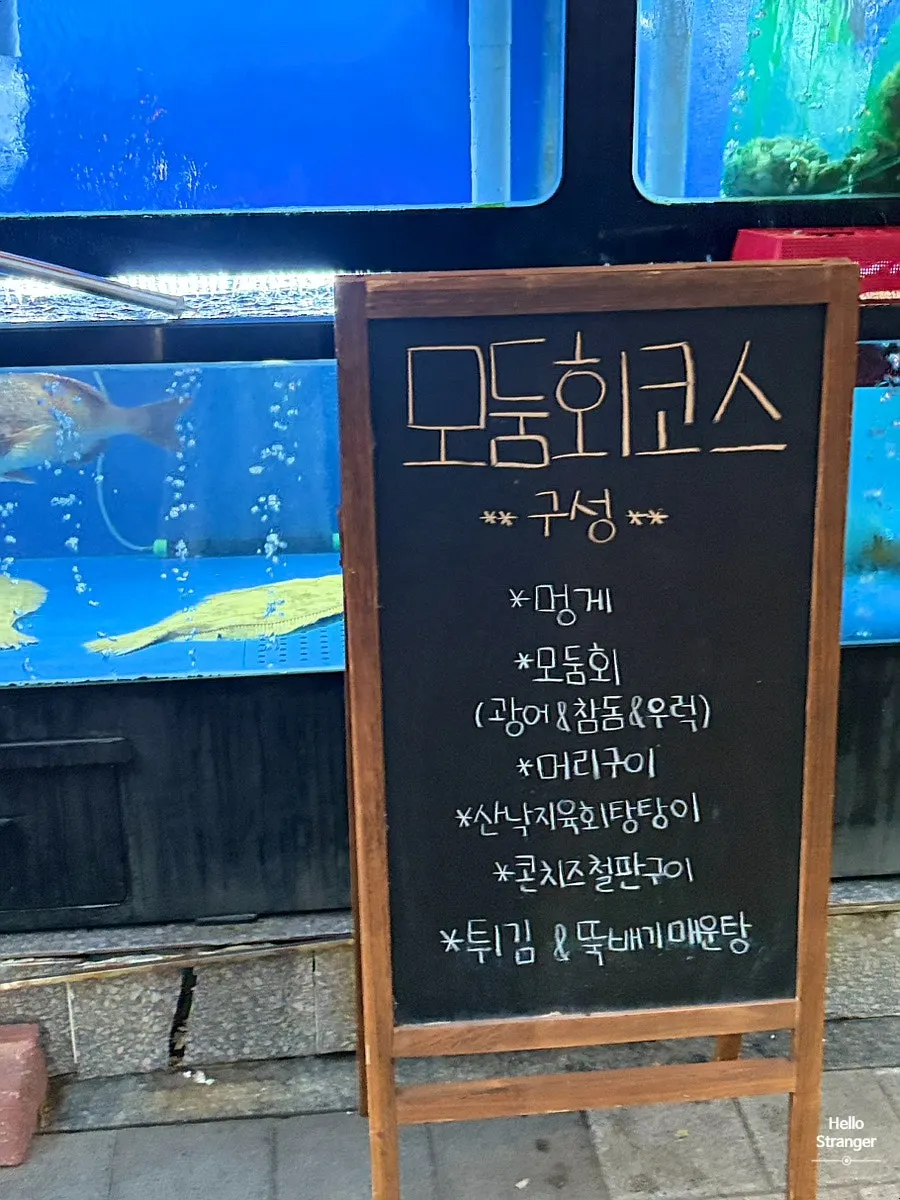 모둠회코스
** 구성 **
*멍게
*모둠회
(광어&참돔&우럭)
*머리구이
*산낙지육회탕탕이
*콘치즈철판구이
*튀김 & 뚝배기매운탕
Hello
Stranger